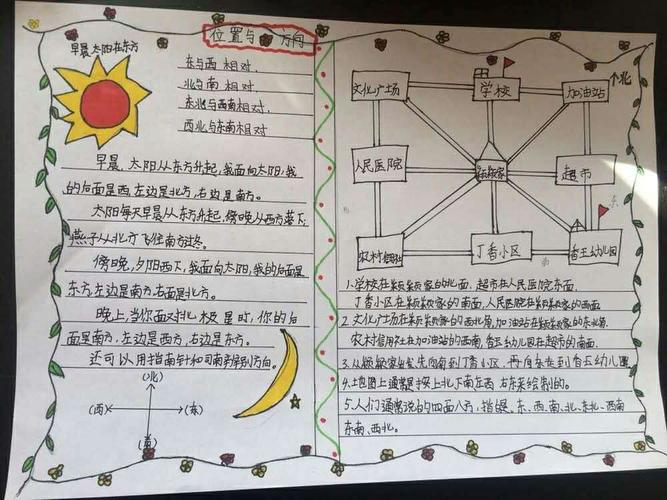 位置与方向
早晨太阳在东方
东与西相对.
北与南相对.
东北与西南相对.
西北与东南相对.
早晨,太阳从东方升起,我面向太阳,我
的后面是西,左边是北方,右边是南方。
太阳每天早晨从东方升起,傍晚从西方落下,
燕子从北方飞往南方过冬。
傍晚,夕阳西下,我面向太阳,我的后面是
东方,左边是南方,右面是北方。
晚上,当你面对北极星时,你的后
面是南方,左边是西方,右边是东方。
还可以用指南针和司南来辨别方向。
(北)
(西)
(东)
(南)
文化广场
学校
加油站
北
人民医院
颖颖家
超市
东
农村信用社
丁香小区
香王幼儿园
南
1.学校在颖颖家的北面,超市在人民医院东面,
丁香小区在颖颖家的南面,人民医院在颖颖家的西面
2.文化广场在颖颖家的西北角,加油站在颖颖家的东北角.
农村信用社在加油站的西南,香王幼儿园在超市的南面.
3.从颖颖家出发,先向南到丁香小区,再向东走到香王幼儿园
4.地图上通常是按上北下南左西右东来绘制的。
5.人们通常说的四面八方,指的是、东、西、南、北、东北、西南
东南、西北。